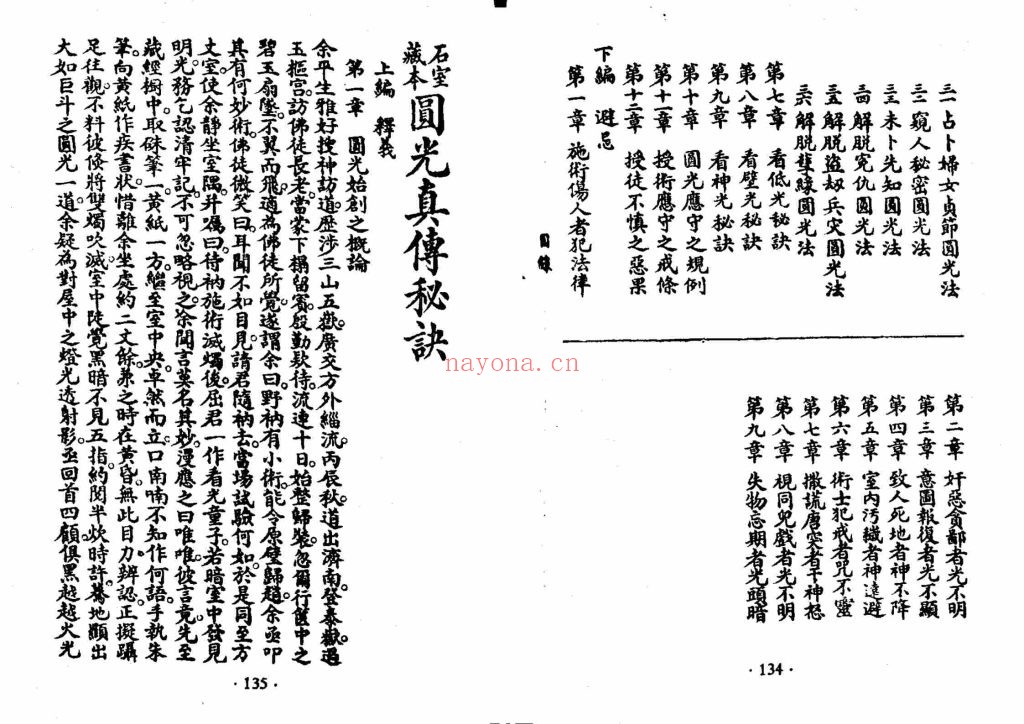 三一 占卜婦女貞節圓光法
三二 窺人秘密圓光法
三三 未卜先知圓光法
三四 解脫冤仇圓光法
三五 解脫盜刼兵灾圓光法
三六 解脫孽緣圓光法
第七章 看低光秘訣
第八章 看壁光秘訣
第九章 看神光秘訣
第十章 圓光應守之規例
第十一章 授術應守之戒條
第十二章 授徒不慎之惡果
下編 避忌
第一章 施術傷人者犯法律
目錄
第二章 奸惡貪鄙者光不明
第三章 意圖報復者光不顯
第四章 致人死地者神不降
第五章 室內污穢者神遠避
第六章 術士犯戒者咒不靈
第七章 撒謊唐突者干神怒
第八章 視同兒戲者光不明
第九章 失物忘期者光頭暗
·134·
石室藏本 圓光真傳秘訣
上編 釋義
第一章 圓光始創之概論
余平生雅好授神訪道。歷涉三山五嶽。廣交方外緇流。丙辰秋。道出濟南。登泰嶽。過
玉樞宮。訪佛徒長老。當蒙下榻留賓。殷勤欵待。流連十日。始整歸裝。忽爾行篋中之
碧玉扇墜。不翼而飛。適為佛徒所覺。遂謂余曰。野衲有小術。能令原璧歸趙。余亟叩
其有何妙術。佛徒微笑曰。耳聞不如目見。請君隨衲去。當場試驗何如。於是同至方
丈室。使余靜坐室隅。并囑曰。待衲施術滅燭後。屈君一作看光童子。若暗室中發見
明光。務乞認清牢記。不可忽略視之。余聞言莫名其妙。漫應之曰唯唯。彼言竟。先至
藏經櫥中。取硃筆一。黃紙一方。繼至室中央。卓然而立。口南喃不知作何語。手執朱
筆。向黃紙作疾書狀。惜離余坐處。約二丈餘。兼之時在黃昏。無此目力辨認。正擬躡
足往觀。不料彼倏將雙燭吹滅。室中陡覺黑暗不見五指。約閱半炊時許。驀地顯出
大如巨斗之圓光一道。余疑為對屋中之燈光透射影。亟回首四顧。俱黑越越火光
nayona.cn
·135·